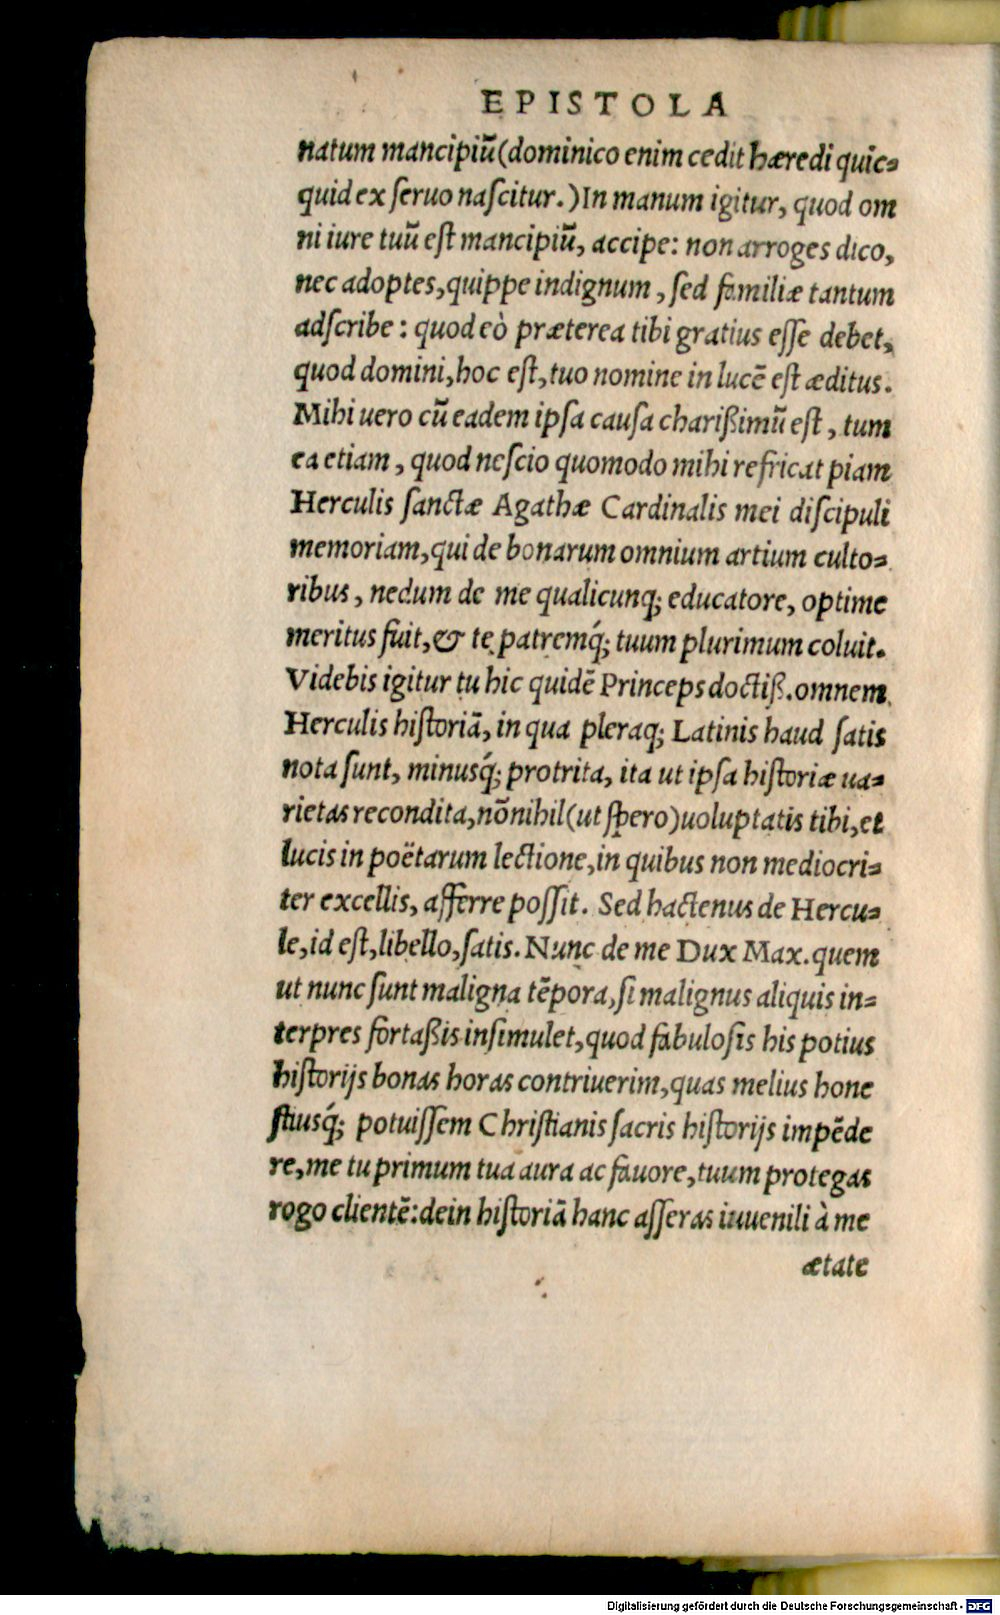 EPISTOLA
natum mancipiũ(dominico enim cedit hæredi quic-
quid ex ſeruo naſcitur.)In manum igitur, quod om
ni iure tuũ eſt mancipiũ, accipe: non arroges dico,
nec adoptes, quippe indignum, ſed familiæ tantum
adſcribe: quod eò præterea tibi gratius eſſe debet,
quod domini, hoc eſt, tuo nomine in lucẽ eſt æditus.
Mihi uero cũ eadem ipſa cauſa charißimũ eſt, tum
ea etiam, quod neſcio quomodo mihi refricat piam
Herculis ſanctæ Agathæ Cardinalis mei diſcipuli
memoriam, qui de bonarum omnium artium culto-
ribus, nedum de me qualicunq; educatore, optime
meritus fuit, & te patremq́; tuum plurimum coluit.
Videbis igitur tu hic quidẽ Princeps doctiß. omnem
Herculis hiſtoriã, in qua pleraq; Latinis haud ſatis
nota ſunt, minusq́; protrita, ita ut ipſa hiſtoriæ ua-
rietas recondita, nõnihil(ut ſpero)uoluptatis tibi, et
lucis in poëtarum lectione, in quibus non mediocri-
ter excellis, afferre poſſit. Sed hactenus de Hercu-
le, id eſt, libello, ſatis. Nunc de me Dux Max. quem
ut nunc ſunt maligna tẽpora, ſi malignus aliquis in-
terpres fortaßis inſimulet, quod fabuloſis his potius
hiſtorijs bonas horas contriuerim, quas melius hone
ſtiusq́; potuiſſem Chriſtianis ſacris hiſtorijs impẽde
re, me tu primum tua aura ac fauore, tuum protegas
rogo clientẽ: dein hiſtoriã hanc aſſeras iuuenili à me
ætate
Digitalisierung gefördert durch die Deutsche Forschungsgemeinschaft - DFG